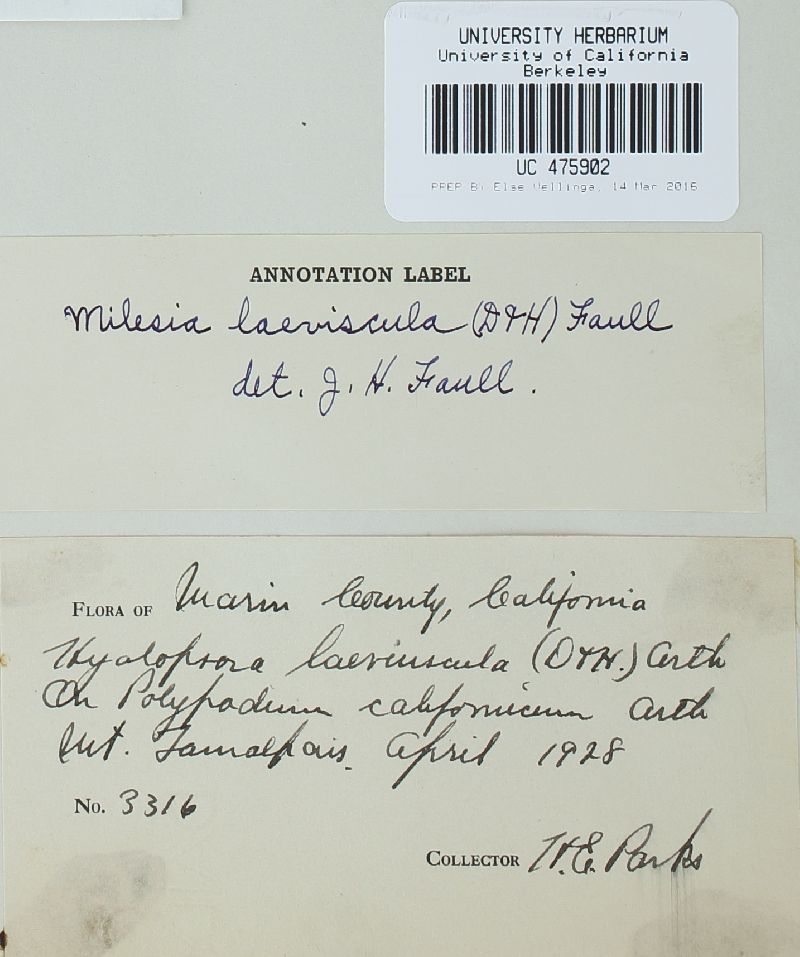 UNIVERSITY HERBARIUM
University of California
Berkeley
UC 475902
PREP By Else Vellinga, 14 Mar 2016
ANNOTATION LABEL
Milesia laeviscula (D&H) Faull
det. J. H. Faull.
FLORA OF Marin County, California
Hyalopsora laeviuscula (D&H.) Arth
On Polypodium californicum Arth
Mt. Tamalpais. April 1928
No. 3316
COLLECTOR H.E. Parks